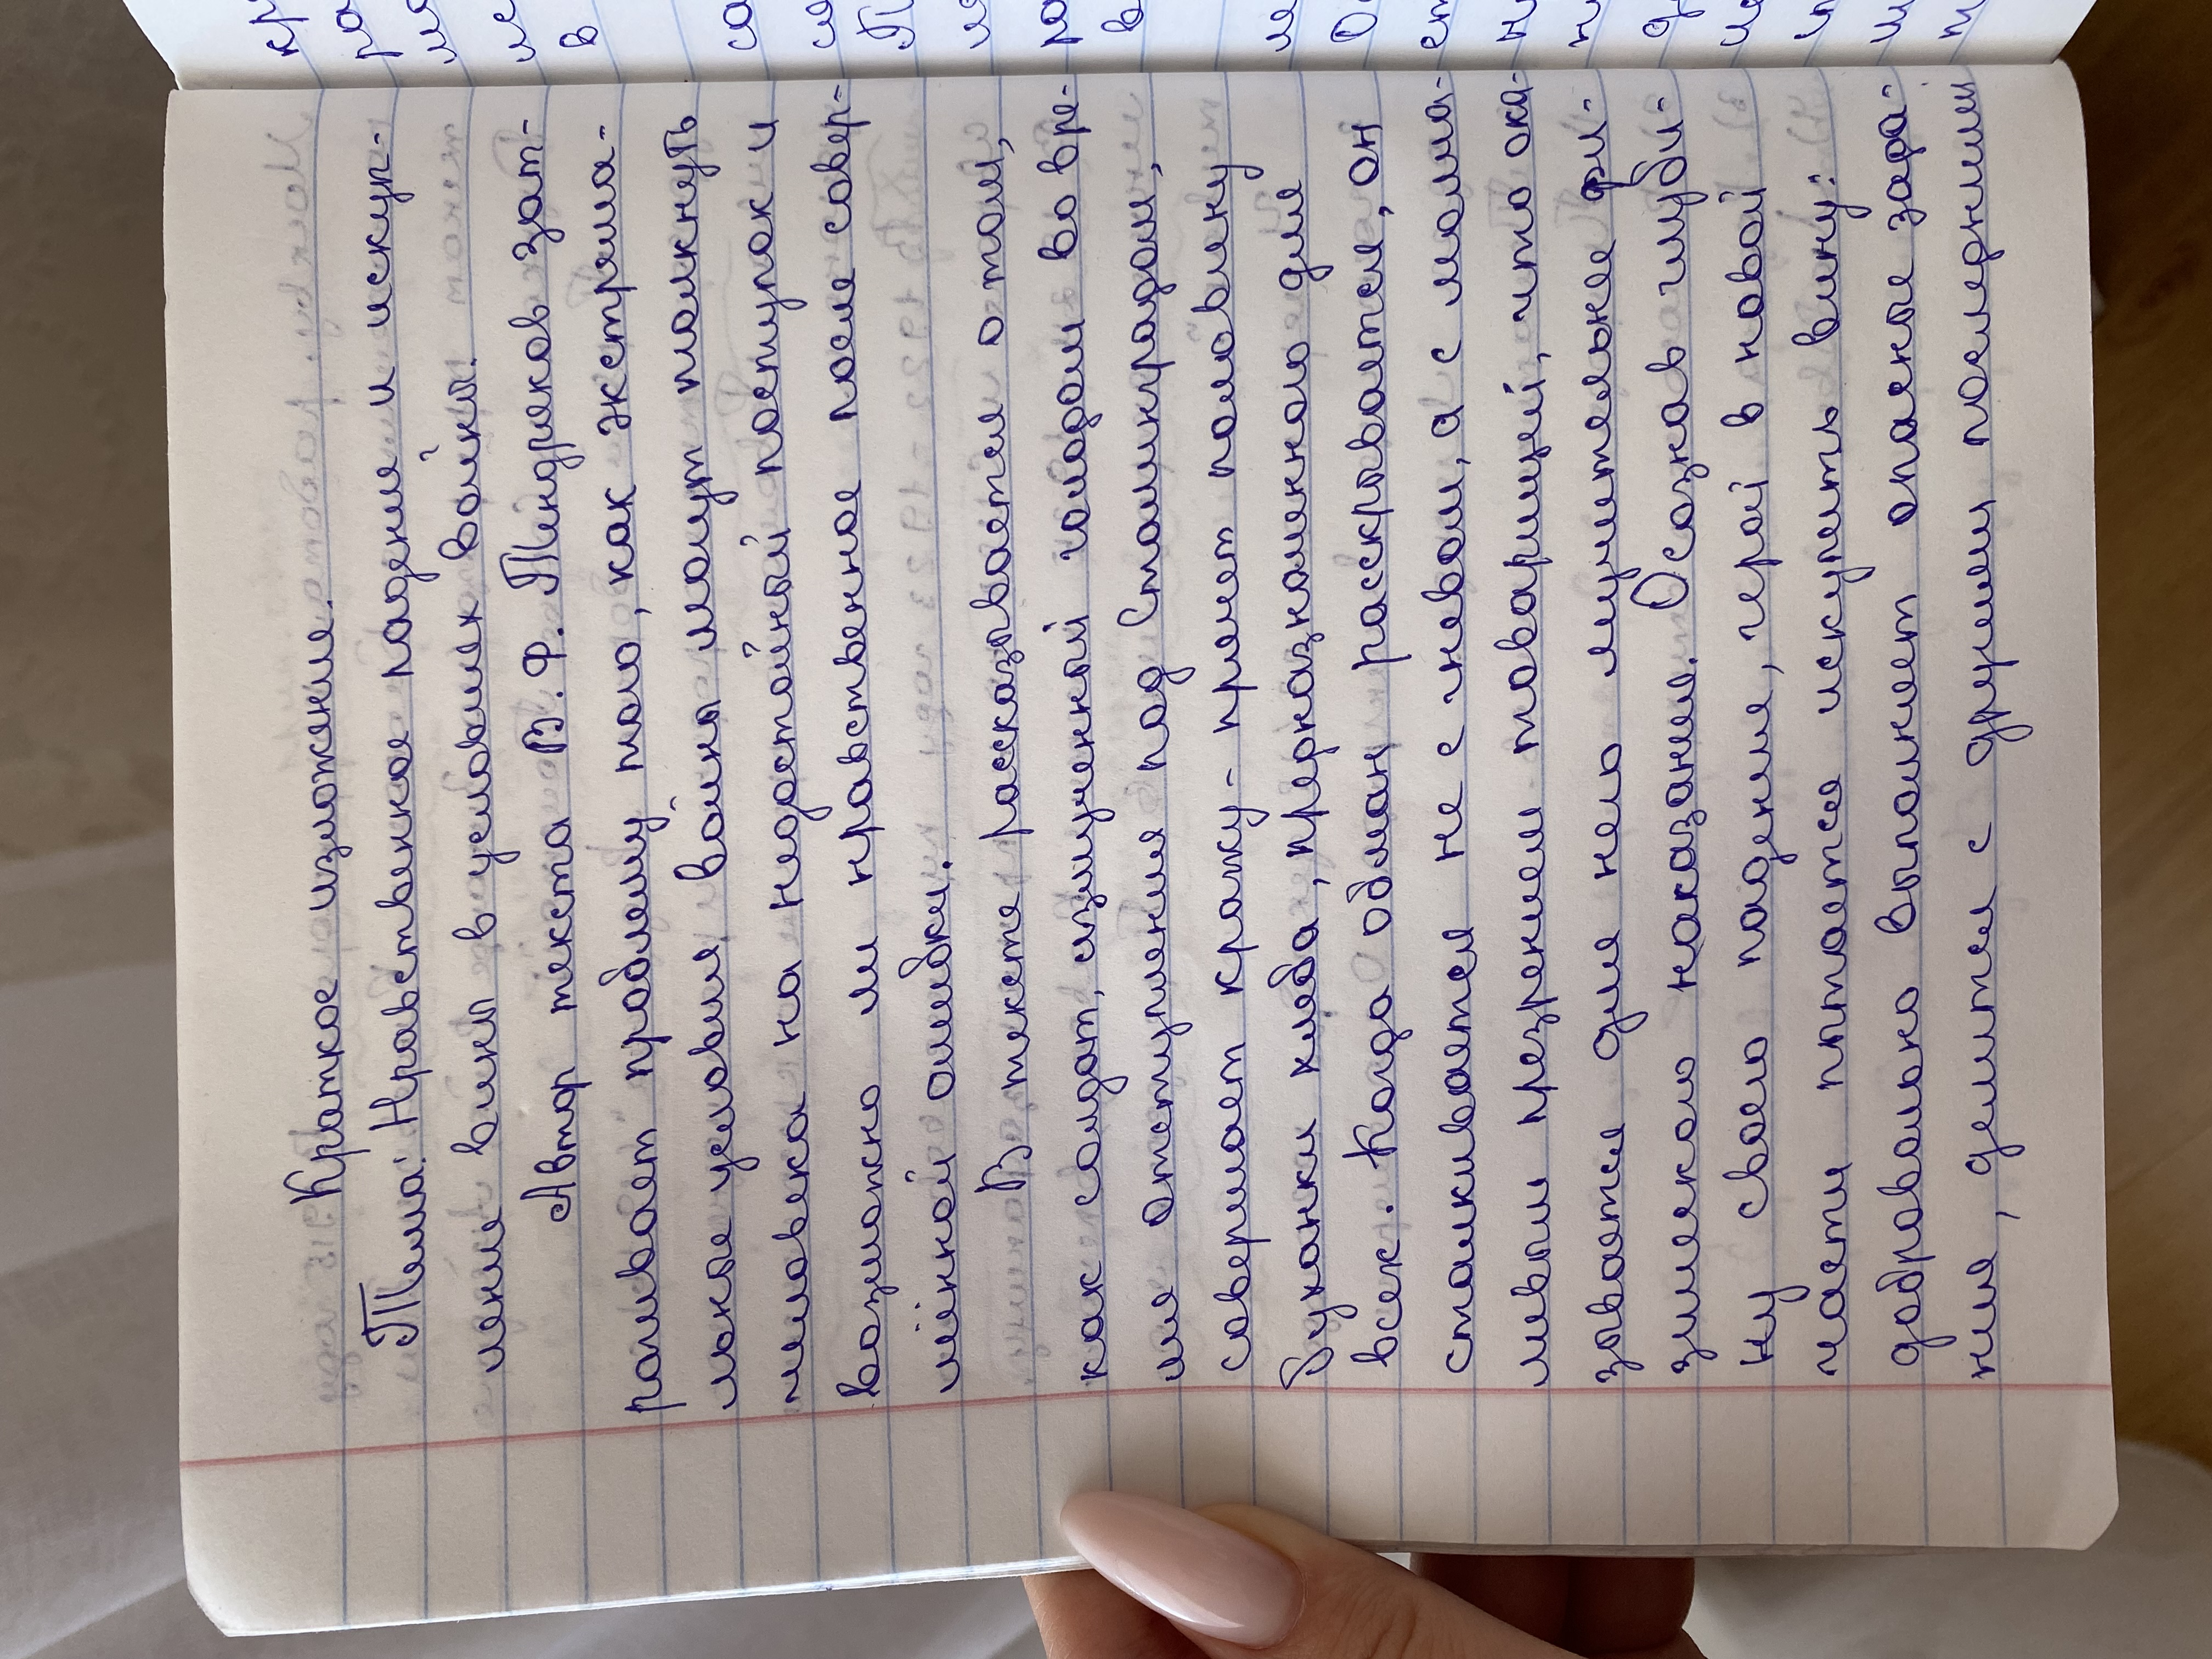 Краткое изложение.
Тема: Нравственное падение и искуп-
ление вины в условиях войны.
Автор текста В. Ф. Тендряков зат-
рагивает проблему того, как экстрема-
льные условия войны могут толкнуть
человека на недостойный поступок и
возможно ли нравственное после совер-
шённой ошибки.
В тексте рассказывается о том,
как солдат, измученный голодом во вре-
мя отступления под Сталинградом,
совершает кражу - прячет половинку
буханки хлеба, предназначенного для
всех. Когда обман раскрывается, он
сталкивается не с гневом, а с молча-
ливым презрением товарищей, что ока-
зывается для него мучительнее фи-
зического наказания. Осознав глуби-
ну своего падения, герой в новой
части пытается искупить вину:
добровольно выполняет опасное зада-
ние, делится с другими последним